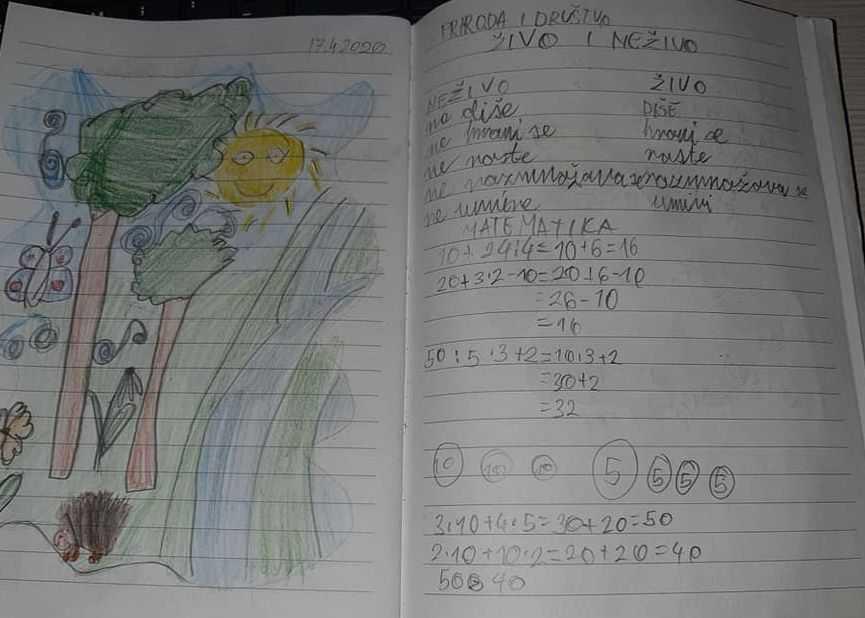 17.4.2020
PRIRODA I DRUŠTVO
ŽIVO I NEŽIVO
NEŽIVO ŽIVO
na diše DIŠE
ne hrani se hrani se
ne raste raste
ne razmnožava se razmnožava se
ne umire umire
MATEMATIKA
10+24:4=10+6=16
20+3·2-10=20+6-10
=26-10
=16
50:5·3+2=10·3+2
=30+2
=32
10 10 10 5 5 5 5
3·10+4·5=30+20=50
2·10+10·2=20+20=40
50 40